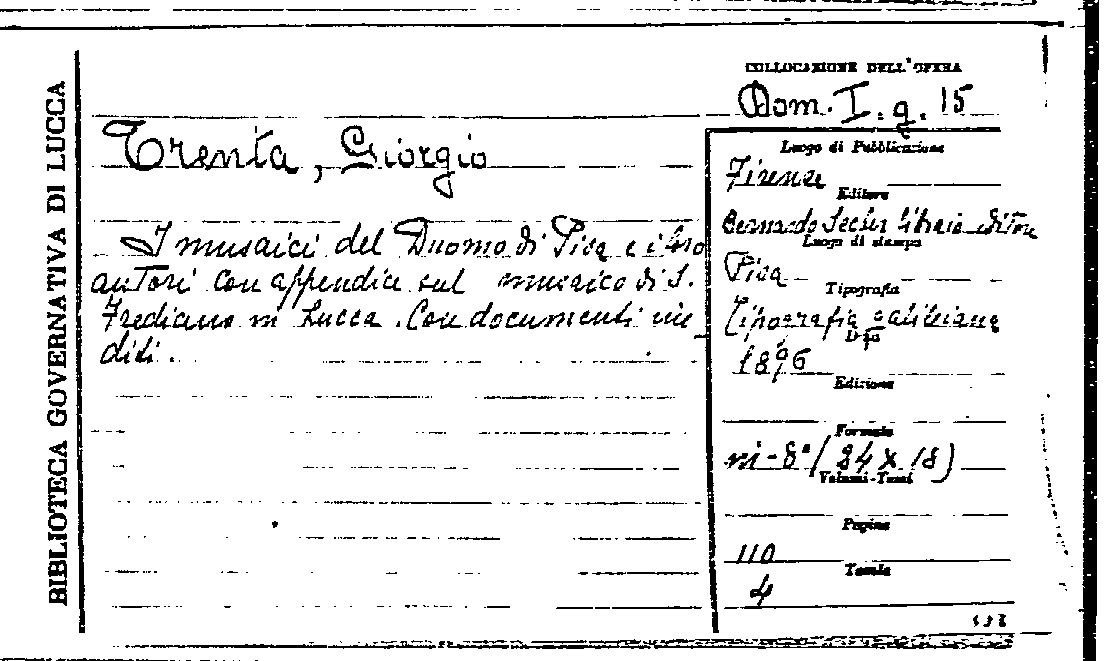 BIBLIOTECA GOVERNATIVA DI LUCCA
COLLOCAZIONE DELL'OPERA
Dom. I. q. 15
Trenta, Giorgio
I musaici del Duomo di Pisa e i loro
autori con appendice sul musaico di S.
Frediano in Lucca. Con documenti ine
diti.
Luogo di Pubblicazione
Firenze
Editore
Bernardo Seeber libraio editore
Luogo di stampa
Pisa
Tipografia
Tipografia galileiana
Data
1896
Edizione
Formato
in-8° (24 x 18)
Volumi-Tomi
Pagine
110
Tavole
4